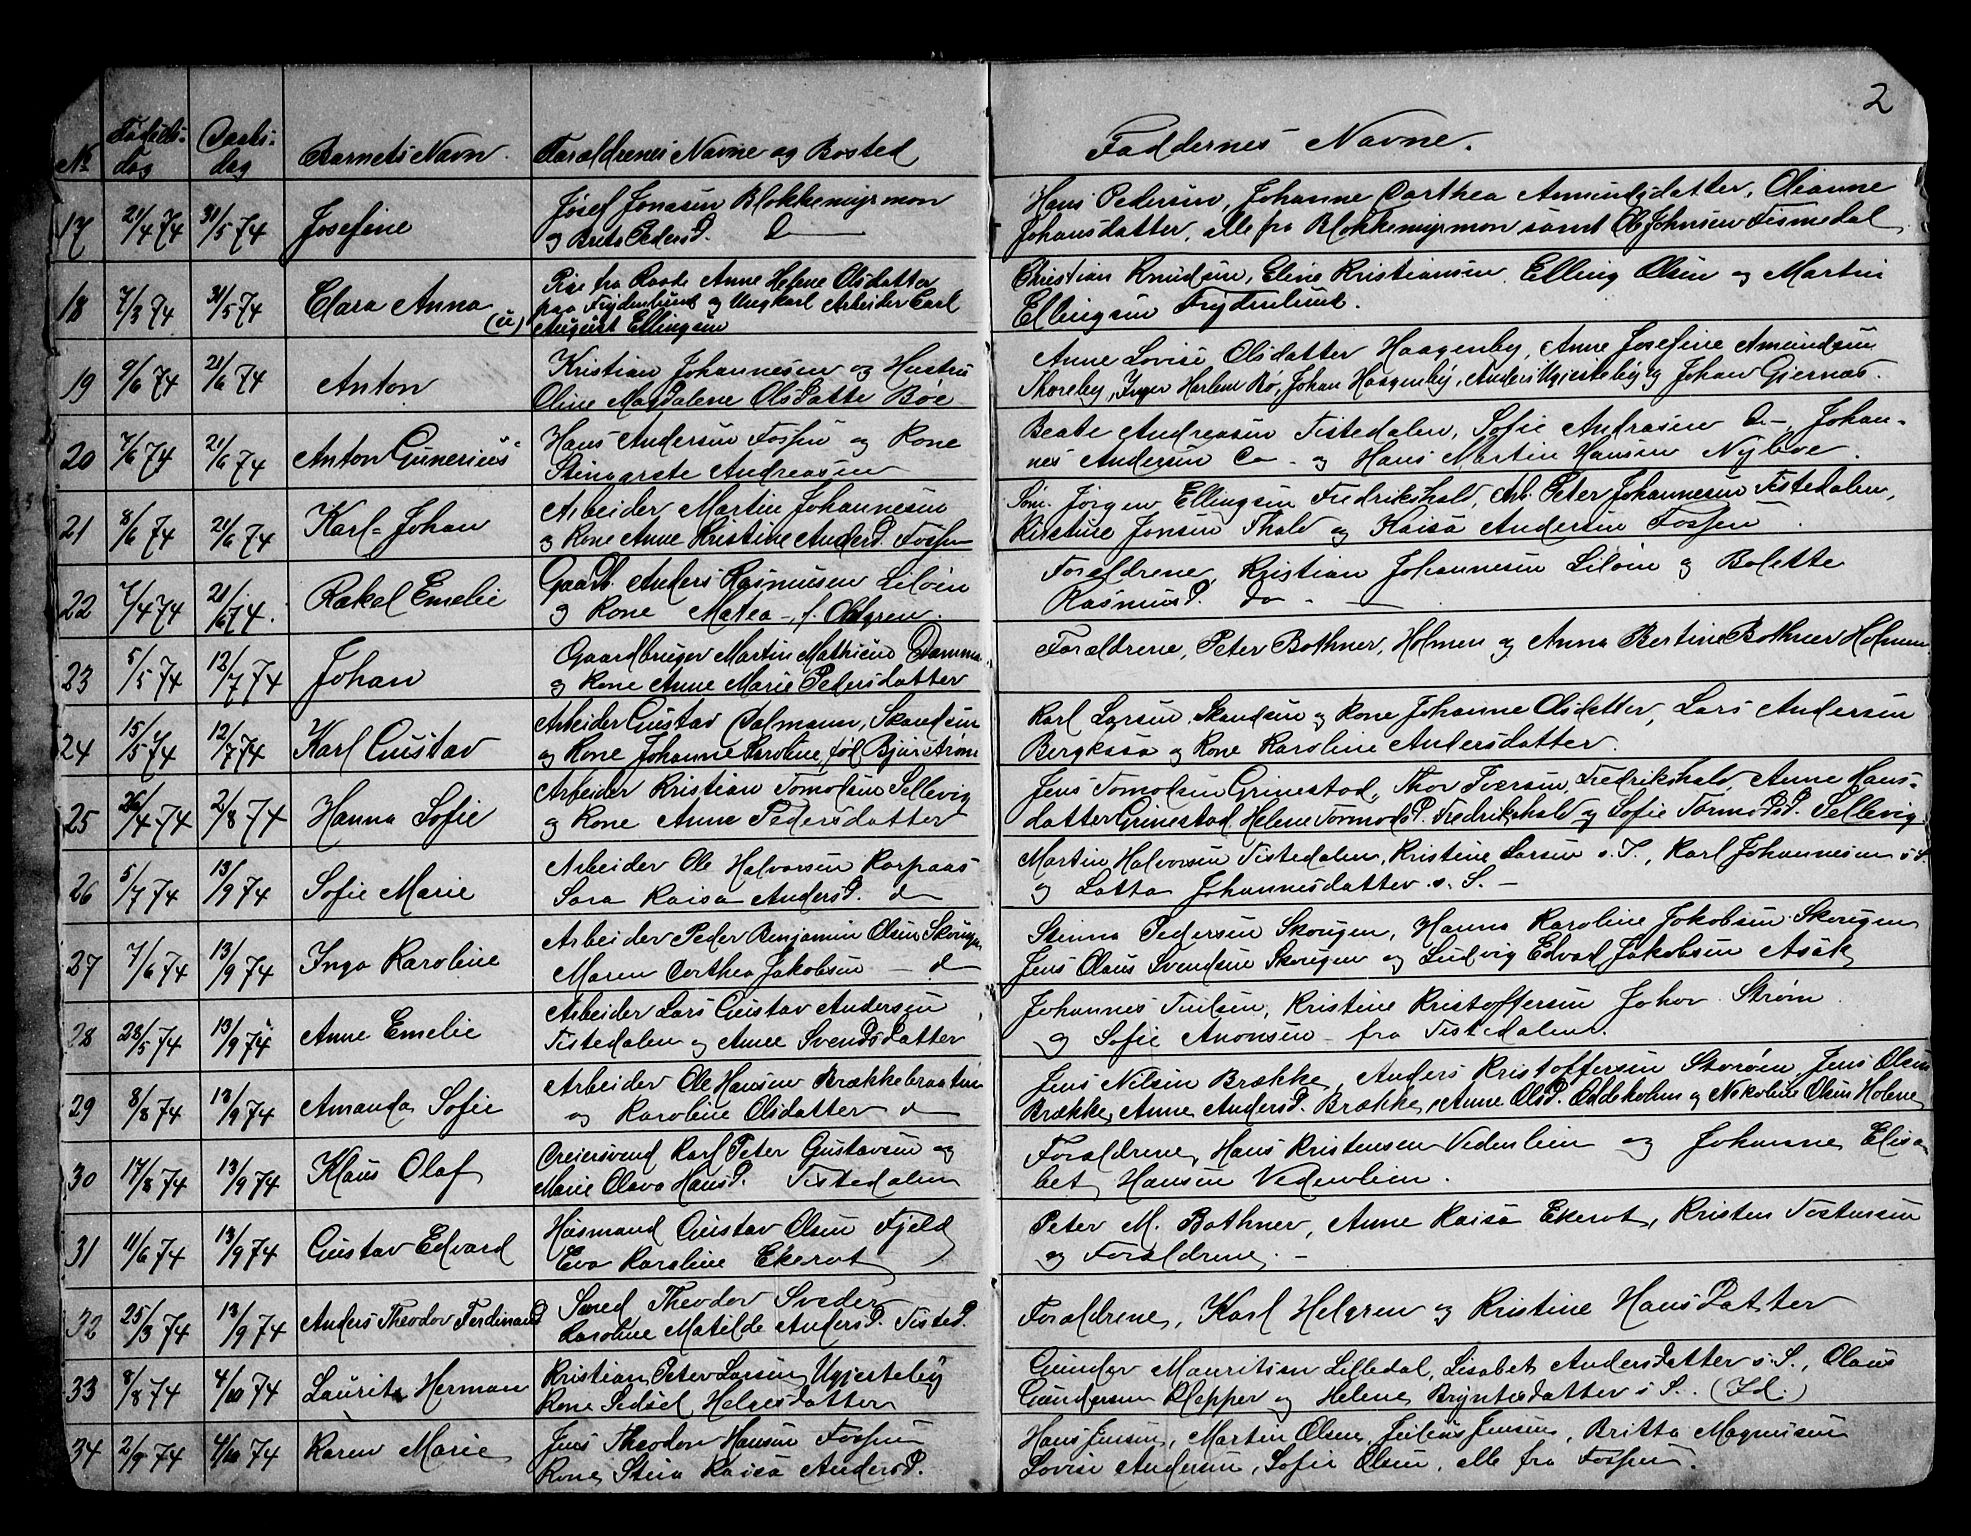 2
No Fødsels- Daabs- Barnets Navn. Forældrenes Navne og Bosted Faddernes Navne.
dag dag
17 21/4 74 31/5 74 Josefine Jósef Jonasen Blokkemyrmon Hans Pedersen, Johanne Dorthea Amundsdatter, Oleanne
og Brita PedersD. D— Johansdatter, alle fra Blokkemyrmon samt Ole Johnsen Tismedal
18 7/3 74 31/5 74 Clara Anna (u) Pige fra Raade Anne Helene Olsdatter Christian Knudsen, Eline Kristiansen, Elling Olsen og Martin
paa Frydenlund og Ungkarl Arbeider Carl Ellingsen Frydenlund.
August Ellingsen
19 9/6 74 21/6 74 Anton Kristian Johannesen og Hustru Anne Lovise Olsdatter Haagenby, Anne Josefine Amundsen
Oline Magdalene OlsDatte Bøe Thoreby, Inger Harlem Bø, Johan Haagenby, Anders Ugjerteby og Johan Gjernæs.
20 7/6 74 21/6 74 Anton Gunerius Hans Andersen Fossen og Kone Beate Andreasen Tistedalen, Sofie Andrasen D—, Johan-
Stinagrete Andreasen nes Andersen Do - og Hans Martin Hansen Nyboe.
21 8/6 74 21/6 74 Karl-Johan Arbeider Martin Johannesen Søm. Jörgen Ellingsen Fredrikshald, Arb. Peter Johannesen Tistedalen,
og Kone Anne Kristine AndersD. Fossen Kirstine Jonsen Thald og Kaisa Andersen Fossen.
22 7/4 74 21/6 74. Rakel Emelie Gaardb. Anders Rasmusen Liløin Forældrene, Kristian Johannesen Liløin og Bolette
og Kone Matea —, f. Odgren. RasmusD. Do. —
23 5/5 74 12/7 74 Johan Gaardbruger Martin Mathisen Damma Forældrene, Peter Bothner, Holmen og Anna Bertine Bothner Holmen
og Kone Anne Marie Pedersdatter
24 15/5 74 12/7 74 Karl Gustav Arbeider Gustav Dalmann, Skandsen Karl Larsen Skandsen og Kone Johanne Olsdatter, Lars Andersen
og Kone Johanne Karoline, føl Bjurstrøm Bergkasa og Kone Karoline Andersdatter.
25 26/4 74 2/8 74 Hanna Sofie Arbeider Kristian Tomolsen Sellevig Jens Tomolsen Grinestad, Thov Toersen, Fredrikshald, Anne Hans-
og Kone Anne Pedersdatter datter Grinestad, Helene TormodsD. Fredrikshald og Sofie TormodsD. Sellevig.
26 5/7 74 13/9 74 Sofie Marie Arbeider Ole Halvorsen Korpaas Martin Halvorsen Tistedalen, Kristine Larsen s. S., Karl Johannesen s S
Sara Kaisa AndersD. d— og Lotta Johannesdatter s. S. —
27 7/6 74 13/9 74 Inga Karoline Arbeider Peder Benjamin Olsen Skougen Stinna Pedersen Skougen, Hanna Karoline Jakobsen Skougen
Maren Dorthea Jakobsen — d— Jens Olaus Svendsen Skougen og Ludvig Edvad Jakobsen Asak
28 28/5 74 13/9 74 Anne Emelie Arbeider Lars Gustav Andersen Johannes Nilsen, Kristine Kristoffersen Johov. Strøm
Tistedalen og Anne SvendsDatter og Sofie Anonsen — fra Tistedalen.
29 8/8 74 13/9 74 Amanda Sofie Arbeider Ole Hansen Brækkebraaten Jens Nilsen Brække, Anders Kristoffersen Storøm, Jens Olsen
og Karoline Olsdatter d— Brække, Anne AndersD. Brække, Anne OlsD. Oddekolm og Nikoline Olsen Holene
30 17/8 74 13/9 74 Klaus Olaf Dreiersvend Karl Peter Gustavsen og Forældrene, Hans Kristensen Vedenlien og Johanne Elisa-
Marie Olava HansD. Tistedalen bet Hansen Vedenlien.
31 11/6 74 13/9 74 Gustav Edvard Husmand Gustav Olsen Fjeld Peter M. Bothner, Anne Kaisa Ekerot, Kristen Tostensen
Eva Karoline Ekerot og Forældrene. —
32 25/3 74 13/9 74 Anders Theodor Ferdinand Smed Theodor Sveder Forældrene, Karl Helgren og Kristine HansDatter
Karoline Matilde AndersD. TisteD.
33 8/8 74 4/10 74 Lauritz Herman Kristian Peter Larsen Ugjerteby Gunder Mauritsen Lilledal, Lisabet AndersDatter s. S., Olaus
Kone Sedsel Helgesdatter Gundersen Klepper og Helene Bryntesdatter i S. (Id.)
34 2/9 74 4/10 74 Karen Marie Jens Theodor Hansen Fossen Hans Jensen, Martin Olsen, Julius Jensen, Britta Magnusen
Kone Stina Kaisa AndersD. Lovise Andersen, Sofie Olsen, alle fra Fossen.